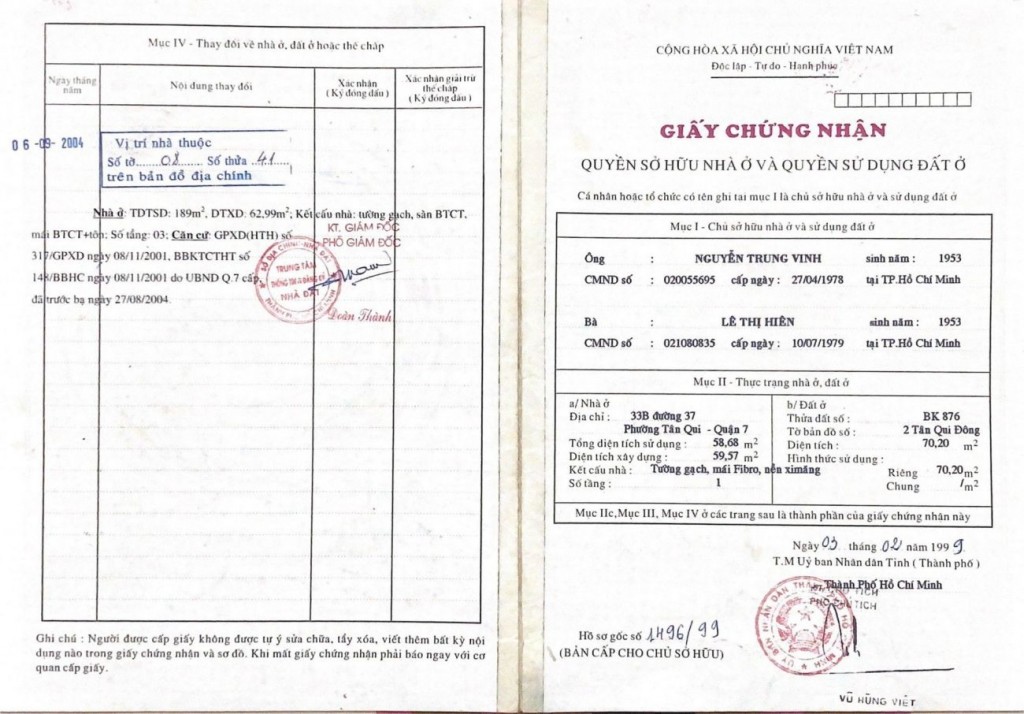 Mục IV - Thay đổi về nhà ở, đất ở hoặc thế chấp
Ngày tháng năm
Nội dung thay đổi
Xác nhận
( Ký đóng dấu )
Xác nhận giải trừ
thế chấp
( Ký đóng dấu )
06-09-2004
Vị trí nhà thuộc
Số tờ....08........ Số thửa ..41..
trên bản đồ địa chính
Nhà ở: TDTSD: 189m², DTXD: 62,99m²; Kết cấu nhà: tường gạch, sàn BTCT,
mái BTCT+tôn; Số tầng: 03; Căn cứ: GPXD(HTH) số
317/GPXD ngày 08/11/2001, BBKTCTHT số
148/BBHC ngày 08/11/2001 do UBND Q.7 cấp,
đã trước bạ ngày 27/08/2004.
KT. GIÁM ĐỐC
PHÓ GIÁM ĐỐC
SỞ ĐỊA CHÍNH-NHÀ ĐẤT
TRUNG TÂM
THÔNG TIN & ĐĂNG KÝ
NHÀ ĐẤT
Đoàn Thành
Ghi chú : Người được cấp giấy không được tự ý sửa chữa, tẩy xóa, viết thêm bất kỳ nội
dung nào trong giấy chứng nhận và sơ đồ. Khi mất giấy chứng nhận phải báo ngay với cơ
quan cấp giấy.
CỘNG HÒA XÃ HỘI CHỦ NGHĨA VIỆT NAM
Độc lập - Tự do - Hạnh phúc
GIẤY CHỨNG NHẬN
QUYỀN SỞ HỮU NHÀ Ở VÀ QUYỀN SỬ DỤNG ĐẤT Ở
Cá nhân hoặc tổ chức có tên ghi tại mục I là chủ sở hữu nhà ở và sử dụng đất ở
Mục I - Chủ sở hữu nhà ở và sử dụng đất ở
Ông : NGUYỄN TRUNG VINH sinh năm : 1953
CMND số : 020055695 cấp ngày : 27/04/1978 tại TP.Hồ Chí Minh
Bà : LÊ THỊ HIÊN sinh năm : 1953
CMND số : 021080835 cấp ngày : 10/07/1979 tại TP.Hồ Chí Minh
Mục II - Thực trạng nhà ở, đất ở
a/ Nhà ở
Địa chỉ : 33B đường 37
Phường Tân Qui - Quận 7
Tổng diện tích sử dụng : 58,68 m²
Diện tích xây dựng : 59,57 m²
Kết cấu nhà : Tường gạch, mái Fibro, nền ximăng
Số tầng : 1
b/ Đất ở
Thửa đất số : BK 876
Tờ bản đồ số : 2 Tân Qui Đông
Diện tích : 70,20 m²
Hình thức sử dụng :
Riêng 70,20 m²
Chung / m²
Mục IIc,Mục III, Mục IV ở các trang sau là thành phần của giấy chứng nhận này
Ngày 03 tháng 02 năm 1999
T.M Uỷ ban Nhân dân Tỉnh ( Thành phố )
Thành Phố Hồ Chí Minh
PHÓ CHỦ TỊCH
Hồ sơ gốc số 1496/99
(BẢN CẤP CHO CHỦ SỞ HỮU)
VŨ HÙNG VIỆT